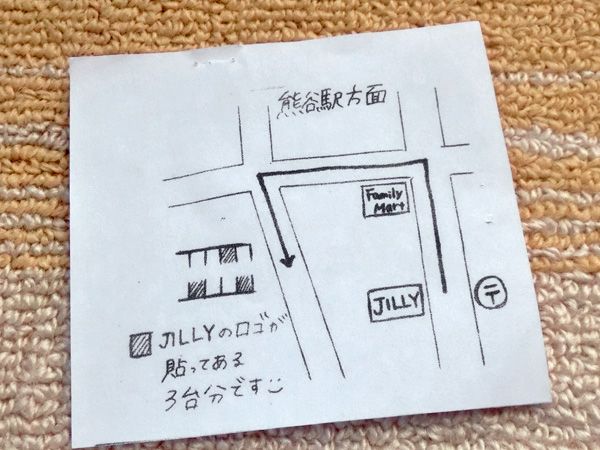 熊谷駅方面
Family
Mart
JILLY
〒
JILLYのロゴが
貼ってある
3台分です